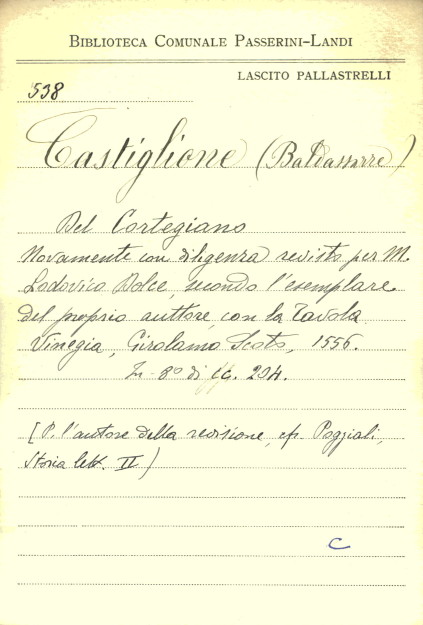 BIBLIOTECA COMUNALE PASSERINI-LANDI
LASCITO PALLASTRELLI
538
Castiglione (Baldassarre)
Del Cortegiano
Novamente con diligenza revisto per M.
Lodovico Dolce, secondo l'esemplare
del proprio auttore, con la Tavola
Vinegia, Girolamo Scoto, 1556.
In-8º di cc. 204.
[P. l'autore della revisione, cfr. Poggiali,
Storia lett. II)
C